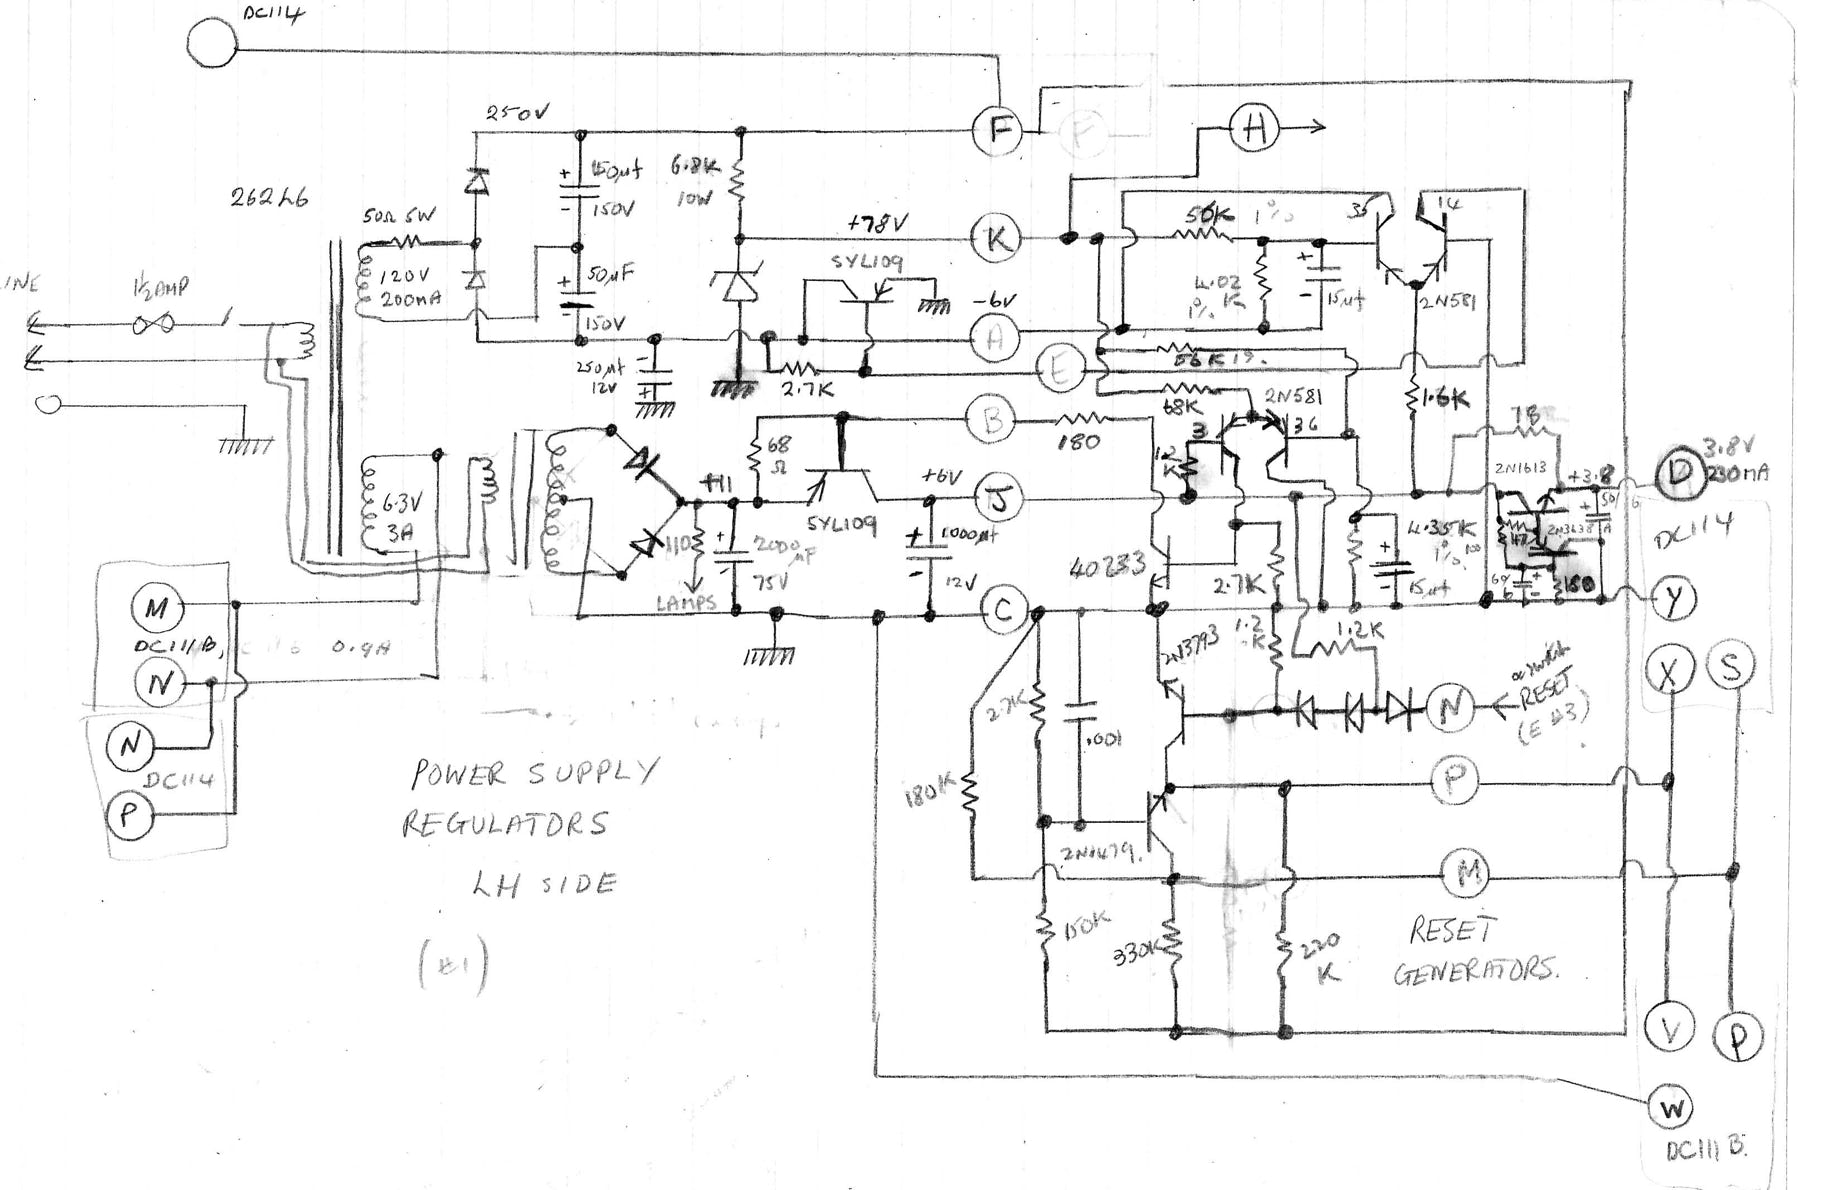 DC114
F
H
250V
150µf
150V
6.8K
10W
262L6
50Ω 5W
120V
200MA
50µF
150V
+78V
K
56K
1%
35
14
SYL109
4.02
K
1%
15µf
2N581
LINE
1/2AMP
-6V
A
250µf
12V
2.7K
E
56K 1%.
68K
2N581
1.6K
3
36
B
180
78
68
Ω
1.2
K
2N1613
+3.8
D
3.8V
230MA
6.3V
3A
+11
SYL109
+6V
J
110
2000
µF
75V
LAMPS
1000µf
12V
40233
2.7K
4.35K
1%
15µf
180
DC114
M
DC111B,
0.9A
N
C
1.2
K
1.2K
2N3793
Y
X
S
N
DC114
P
2.7K
.001
N
RESET
(E #3)
POWER SUPPLY
REGULATORS
LH SIDE
(#1)
180K
P
2N1479.
M
150K
330K
220
K
RESET
GENERATORS.
V
P
W
DC111B.